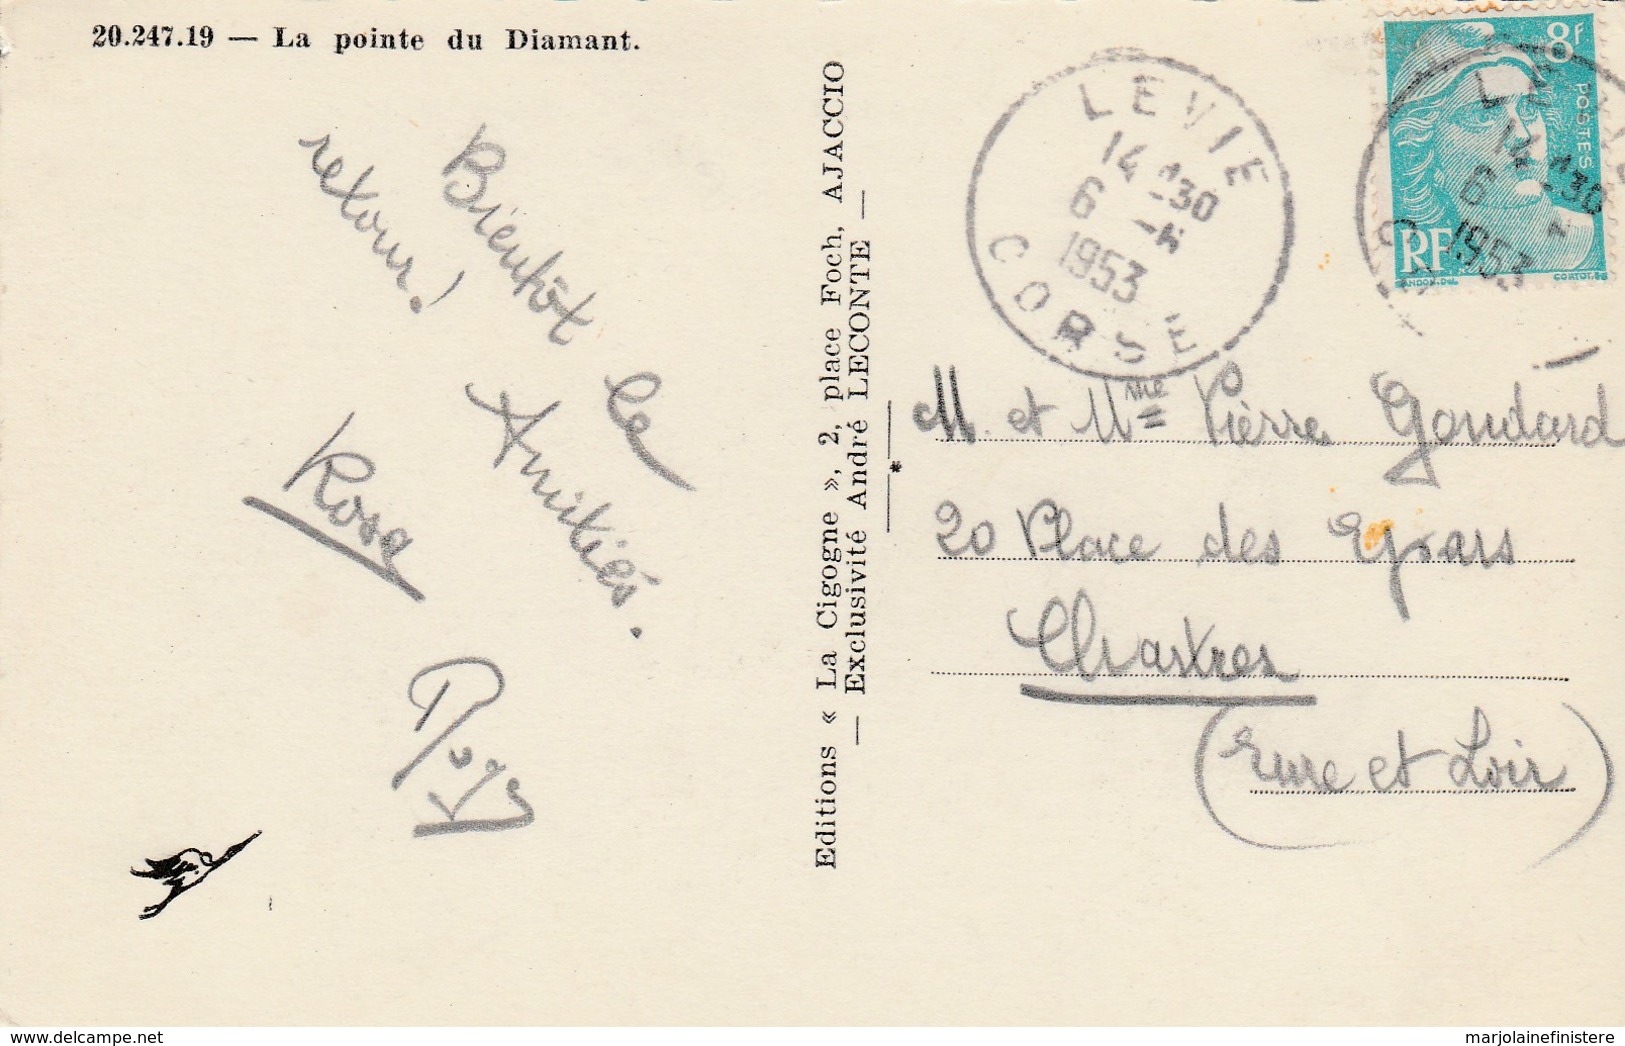 20.247.19 — La pointe du Diamant.
Bientôt le
retour!
Amitiés.
Rosa
Editions « La Cigogne », 2, place Foch, AJACCIO
— Exclusivité André LECONTE —
LEVIE
14 H 30
6 - 4
1953
CORSE
8F
POSTES
RF
GANDON.DEL
CORTOT.SC
14 H 30
6 - 4
1953
M. et Mme Pierre Goudard
20 Place des Epars
Chartres
(Eure et Loir)
www.delcampe.net
marjolainefinistere